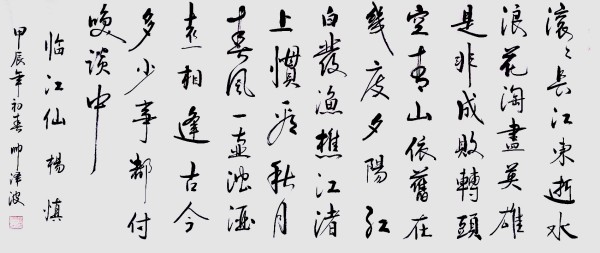 滚〻長江東逝水
浪花淘盡英雄
是非成敗轉頭
空青山依舊在
幾度夕陽紅
白發漁樵江渚
上慣看秋月
春風一壺濁酒
喜相逢古今
多少事都付
咲談中
临江仙 楊慎
甲辰年初春 帅泽波